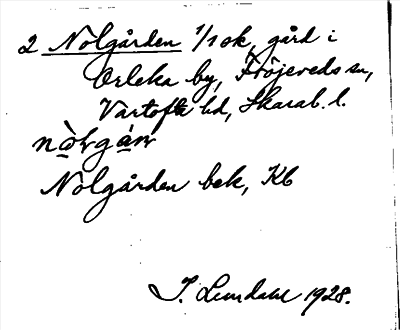 2 Nolgården 1/1 ok, gård i
Orleka by, Fröjereds sn,
Vartofta hd, Skarab. l.
Nolgården bek, Kb
I. Lundahl 1928.